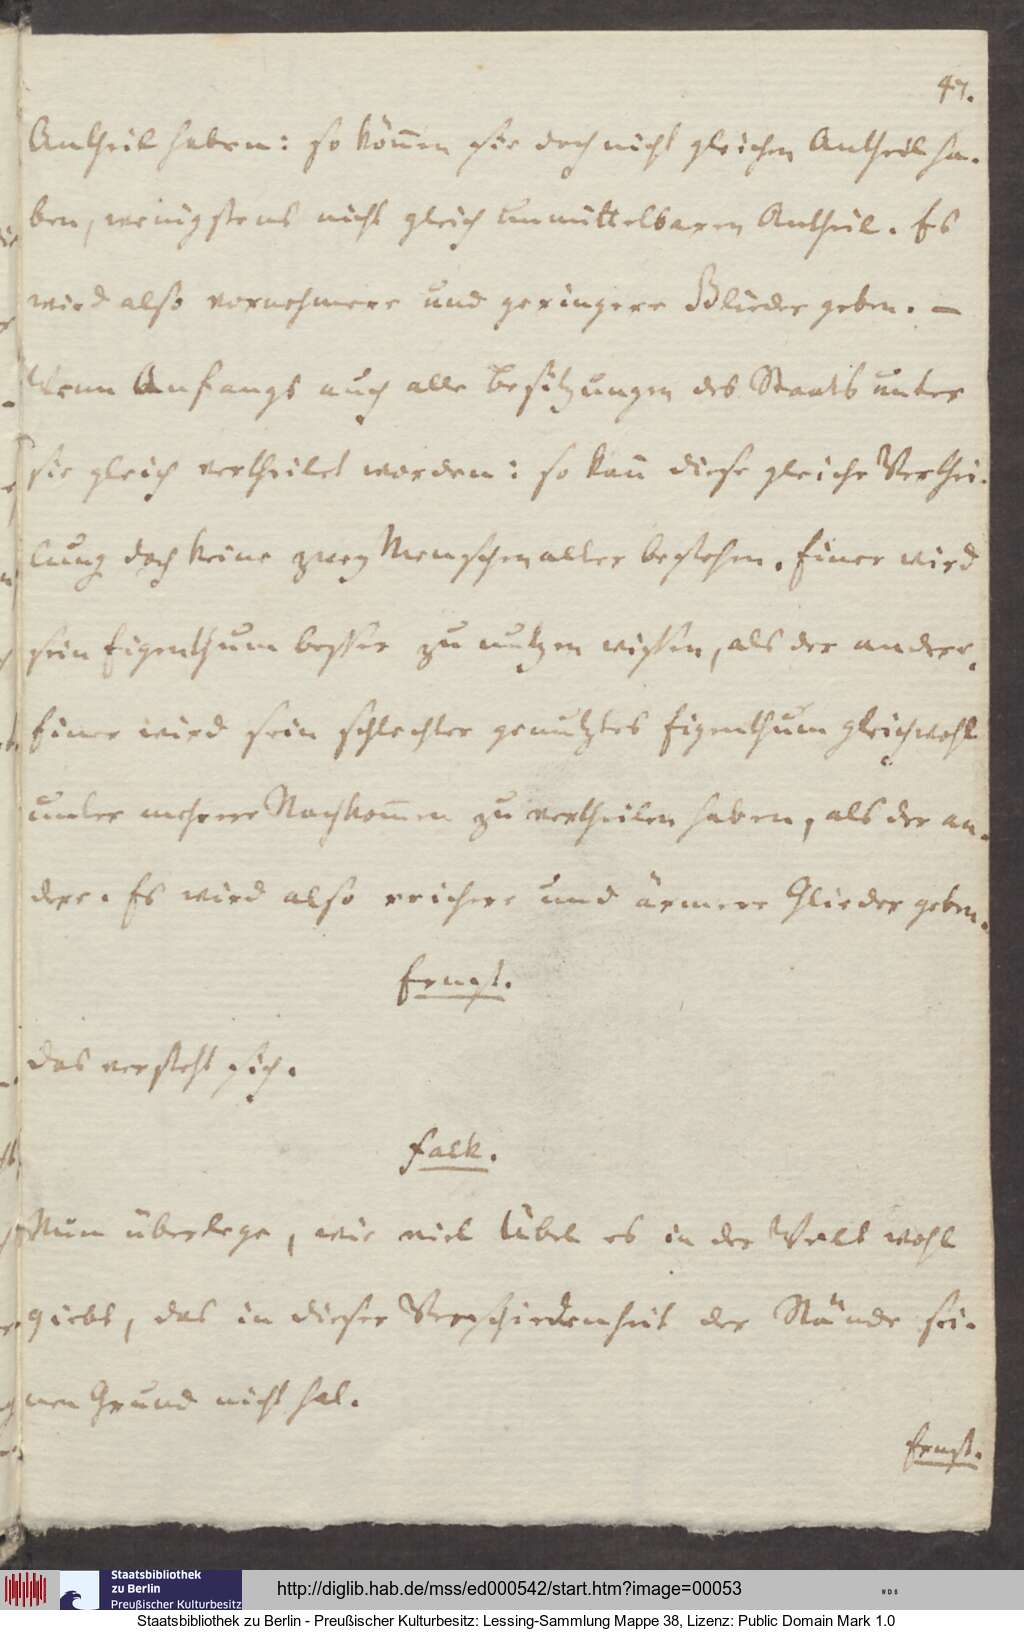 47.
Antheil haben: so köñen sie doch nicht gleichen Antheil ha-
ben, wenigstens nicht gleich unmittelbaren Antheil. Es
wird also vornehmere und geringere Glieder geben. —
Wenn Anfangs auch alle Besitzungen des Staats unter
sie gleich vertheilet worden: so kañ diese gleiche Verthei-
lung doch keine zwey Menschenalter bestehen. Einer wird
sein Eigenthum besser zu nutzen wissen, als der andere.
Einer wird sein schlechter genutztes Eigenthum gleichwohl
unter mehrere Nachkom̃en zu vertheilen haben, als der an-
dere. Es wird also reichere und ärmere Glieder geben.
Ernst.
Das versteht sich.
Falk.
Nun überlege, wie viel Übel es in der Welt wohl
giebt, das in dieser Verschiedenheit der Stände sei-
nen Grund nicht hat.
Ernst.
Staatsbibliothek
zu Berlin
Preußischer Kulturbesitz
http://diglib.hab.de/mss/ed000542/start.htm?image=00053
Staatsbibliothek zu Berlin - Preußischer Kulturbesitz: Lessing-Sammlung Mappe 38, Lizenz: Public Domain Mark 1.0